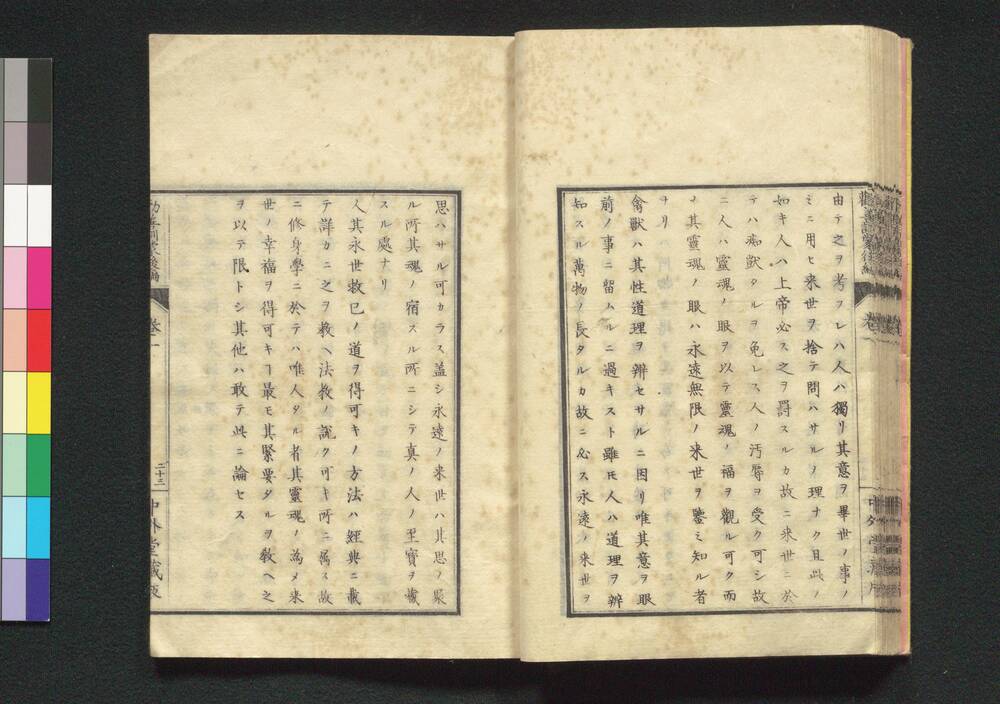 由テ之ヲ考フレハ人ハ獨リ其意ヲ畢世ノ事ノ
ミニ用ヒ来世ヲ捨テ問ハサルノ理ナク且此ノ
如キ人ハ上帝必ス之ヲ罸スルカ故ニ来世ニ於
テハ痴獣タルヲ免レス人ノ汚辱ヲ受ク可シ故
ニ人ハ靈魂ノ眼ヲ以テ靈魂ノ福ヲ觀ル可ク而
メ其靈魂ノ眼ハ永遠無限ノ来世ヲ鑒ミ知ル者
ナリ
禽獣ハ其性道理ヲ辨セサルニ因リ唯其意ヲ眼
前ノ事ニ留ムルニ過キスト雖モ人ハ道理ヲ辨
知スル萬物ノ長タルカ故ニ必ス永遠ノ来世ヲ
思ハサル可カラス蓋シ永遠ノ来世ハ其思ノ聚
ル所其魂ノ宿スル所ニシテ真ノ人ノ至寶ヲ蔵
スル處ナリ
人其永世救已ノ道ヲ得可キノ方法ハ經典ニ載
テ詳カニ之ヲ教ヘ法教ノ説ク可キ所ニ属ス故
ニ修身學ニ於テハ唯人タル者其靈魂ノ為メ来
世ノ幸福ヲ得可キヿ最モ其緊要タルヲ教ヘ之
ヲ以テ限トシ其他ハ敢テ此ニ論セス
卷一
二十三
中外堂蔵版